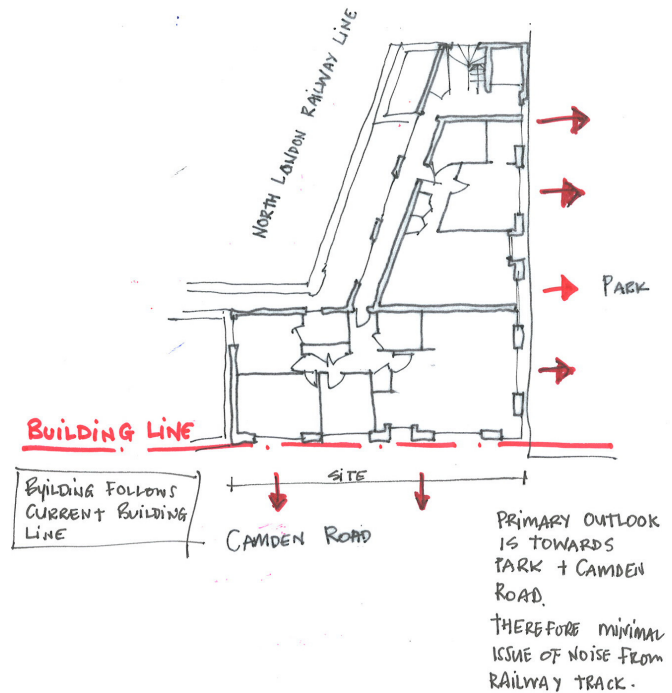 NORTH LONDON RAILWAY LINE
PARK
BUILDING LINE
SITE
BUILDING FOLLOWS
CURRENT BUILDING
LINE
CAMDEN ROAD
PRIMARY OUTLOOK
IS TOWARDS
PARK + CAMDEN
ROAD.
THEREFORE MINIMAL
ISSUE OF NOISE FROM
RAILWAY TRACK.